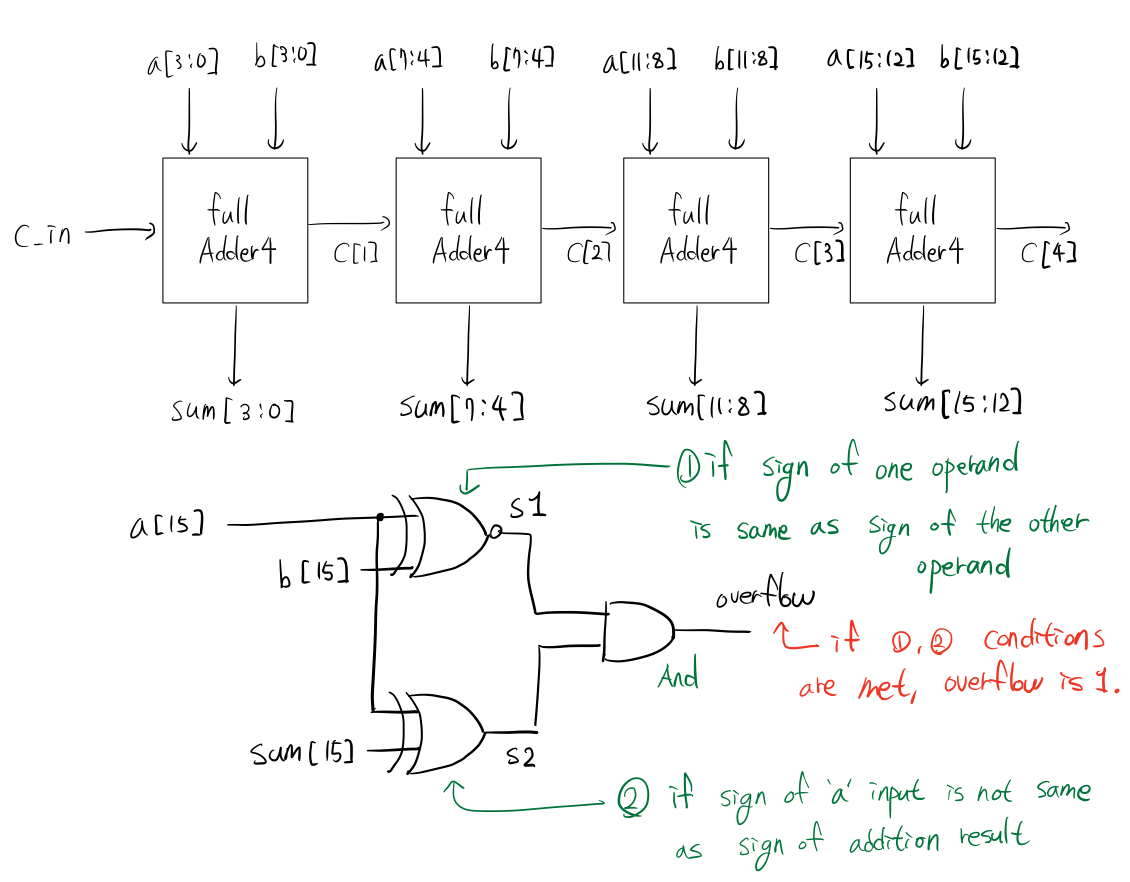 a[3:0] b[3:0] a[7:4] b[7:4] a[11:8] b[11:8] a[15:12] b[15:12]
full full full full
Adder4 Adder4 Adder4 Adder4
C_in C[1] C[2] C[3] C[4]
sum[3:0] sum[7:4] sum[11:8] sum[15:12]
① if sign of one operand
is same as sign of the other
operand
a[15] s1
b[15]
overflow
if ①, ② conditions
are met, overflow is 1.
And
sum[15] s2
② if sign of 'a' input is not same
as sign of addition result